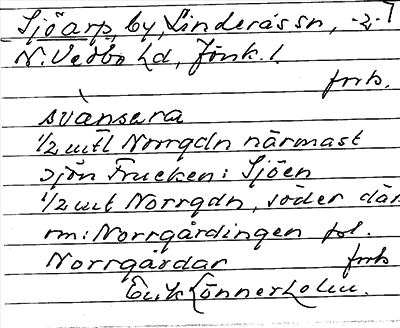 Sjöarp, by, Linderås sn, -2-7
N. Vedbo hd, Jönk. l.
forts.
svansera
1/2 mtl Norrgdn närmast
sjön Frucken: Sjöen
1/2 mt Norrgdn, söder där
rm: Norrgårdingen pl.
Norrgårdar forts
Erik Lönnerholm.